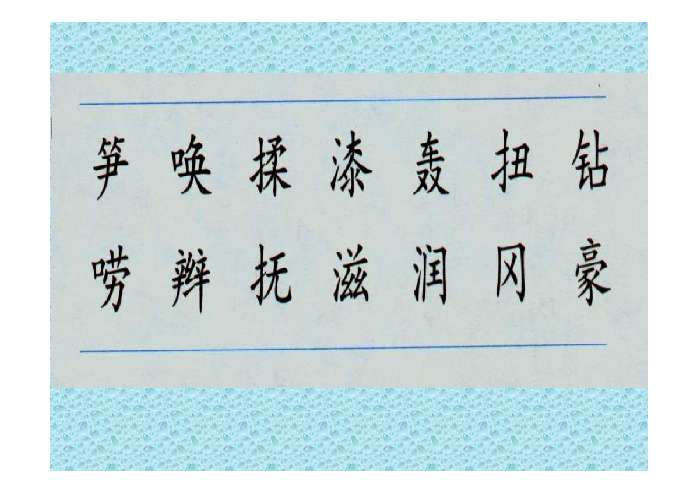 笋 唤 揉 漆 轰 扭 钻
唠 辫 抚 滋 润 冈 豪